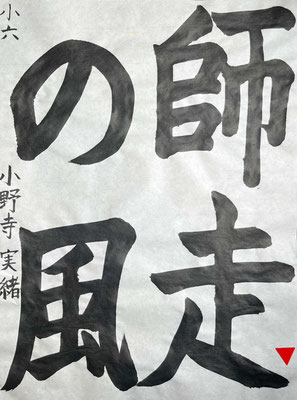 師走
の風
小六
小野寺実緒